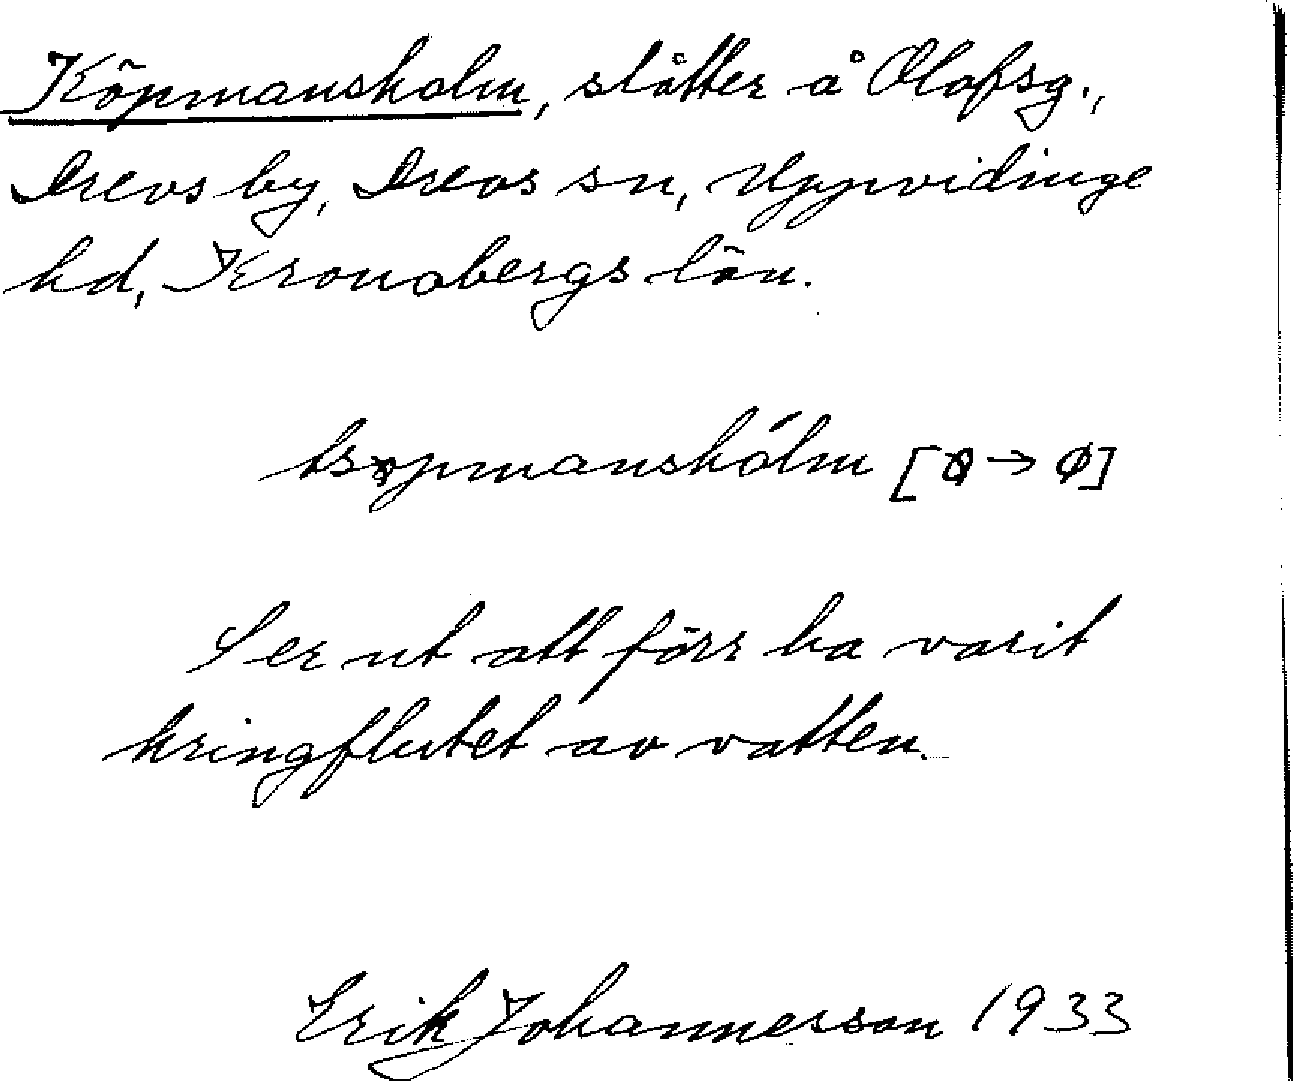 Köpmansholm, slåtter å Olofsg.,
Drevs by, Drevs sn, Uppvidinge
hd, Kronobergs län.
[ꝋ → ø]
Ser ut att förr ha varit
kringflutet av vatten.
Erik Johannesson 1933